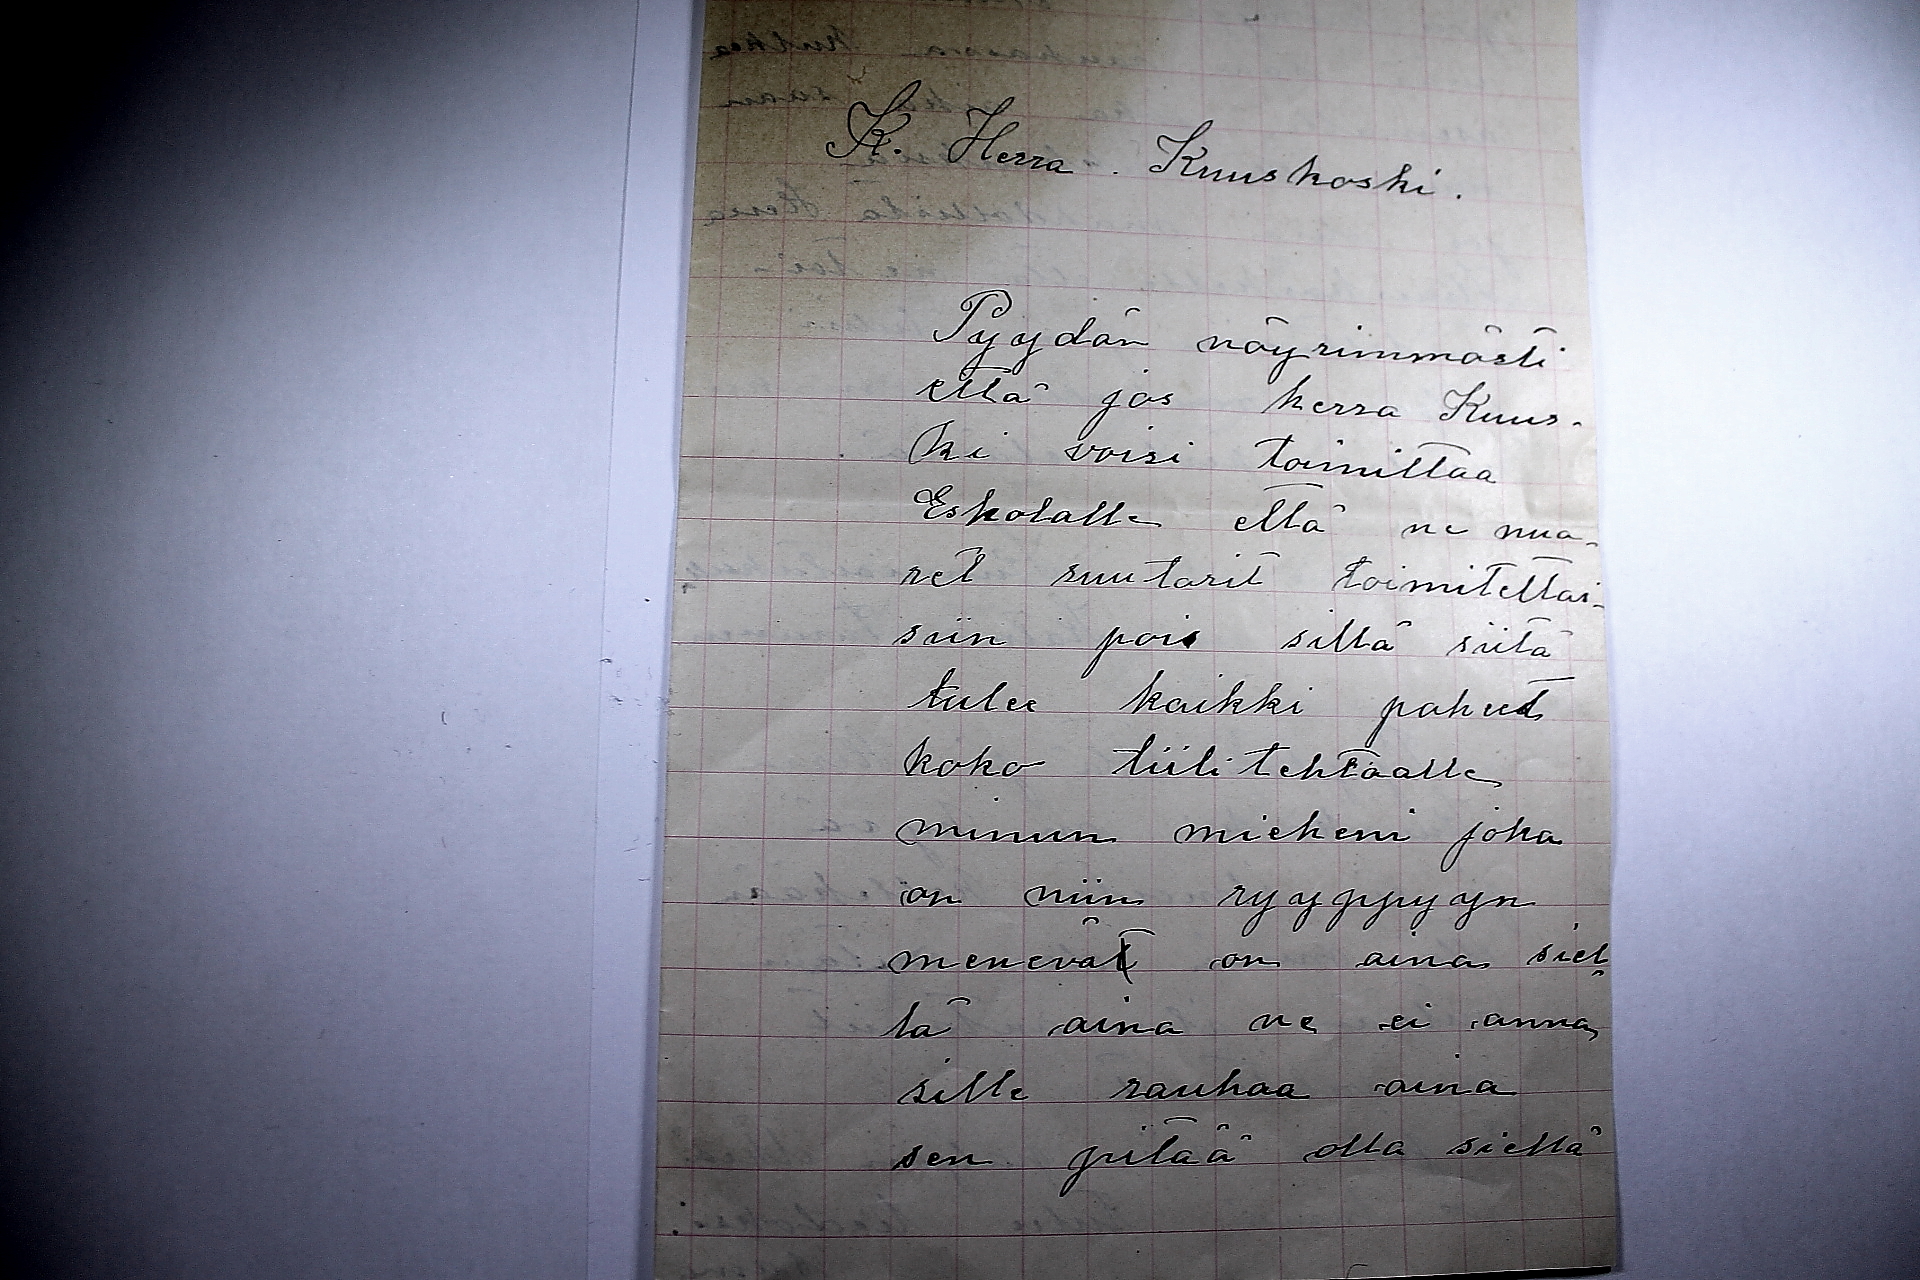 K. Herra. Kuuskoski.
Pyydän nöyrimmästi
että jos herra Kuus-
ki voisi toimittaa
Eskolalle että ne nua-
ret suutarit toimitettai-
siin pois sillä siitä
tulee kaikki pahut
koko tiilitehtaalle
minun mieheni joka
on niin ryyppyyn
menevät on aina siel
lä aina ne ei anna
sille rauhaa aina
sen pitää olla siellä